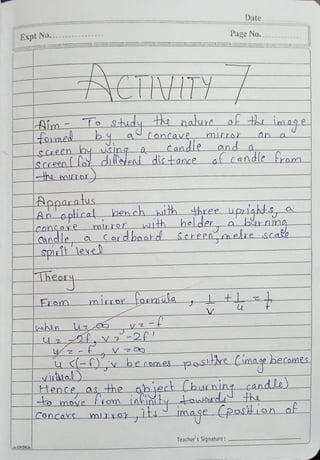 Date
Expt No.
Page No.
ACTIVITY 7
Aim - To study the nature of the image
formed by a concave mirror on a
screen by using a candle and a
screen (for different distance of candle from
the mirror)
Apparatus
An optical bench with three uprights, a
concave mirror with holder, a burning
candle, a cardboard screen, metre scale
spirit level
Theory
From mirror formula, 1/v + 1/u = 1/f
when u = ∞, v = -f
u = -2f, v = -2f
u = -f, v = ∞
u < (-f), v becomes positive (image becomes
virtual)
Hence, as the object (burning candle)
to move from infinity towards the
concave mirror, its image (position of
Teacher's Signature :